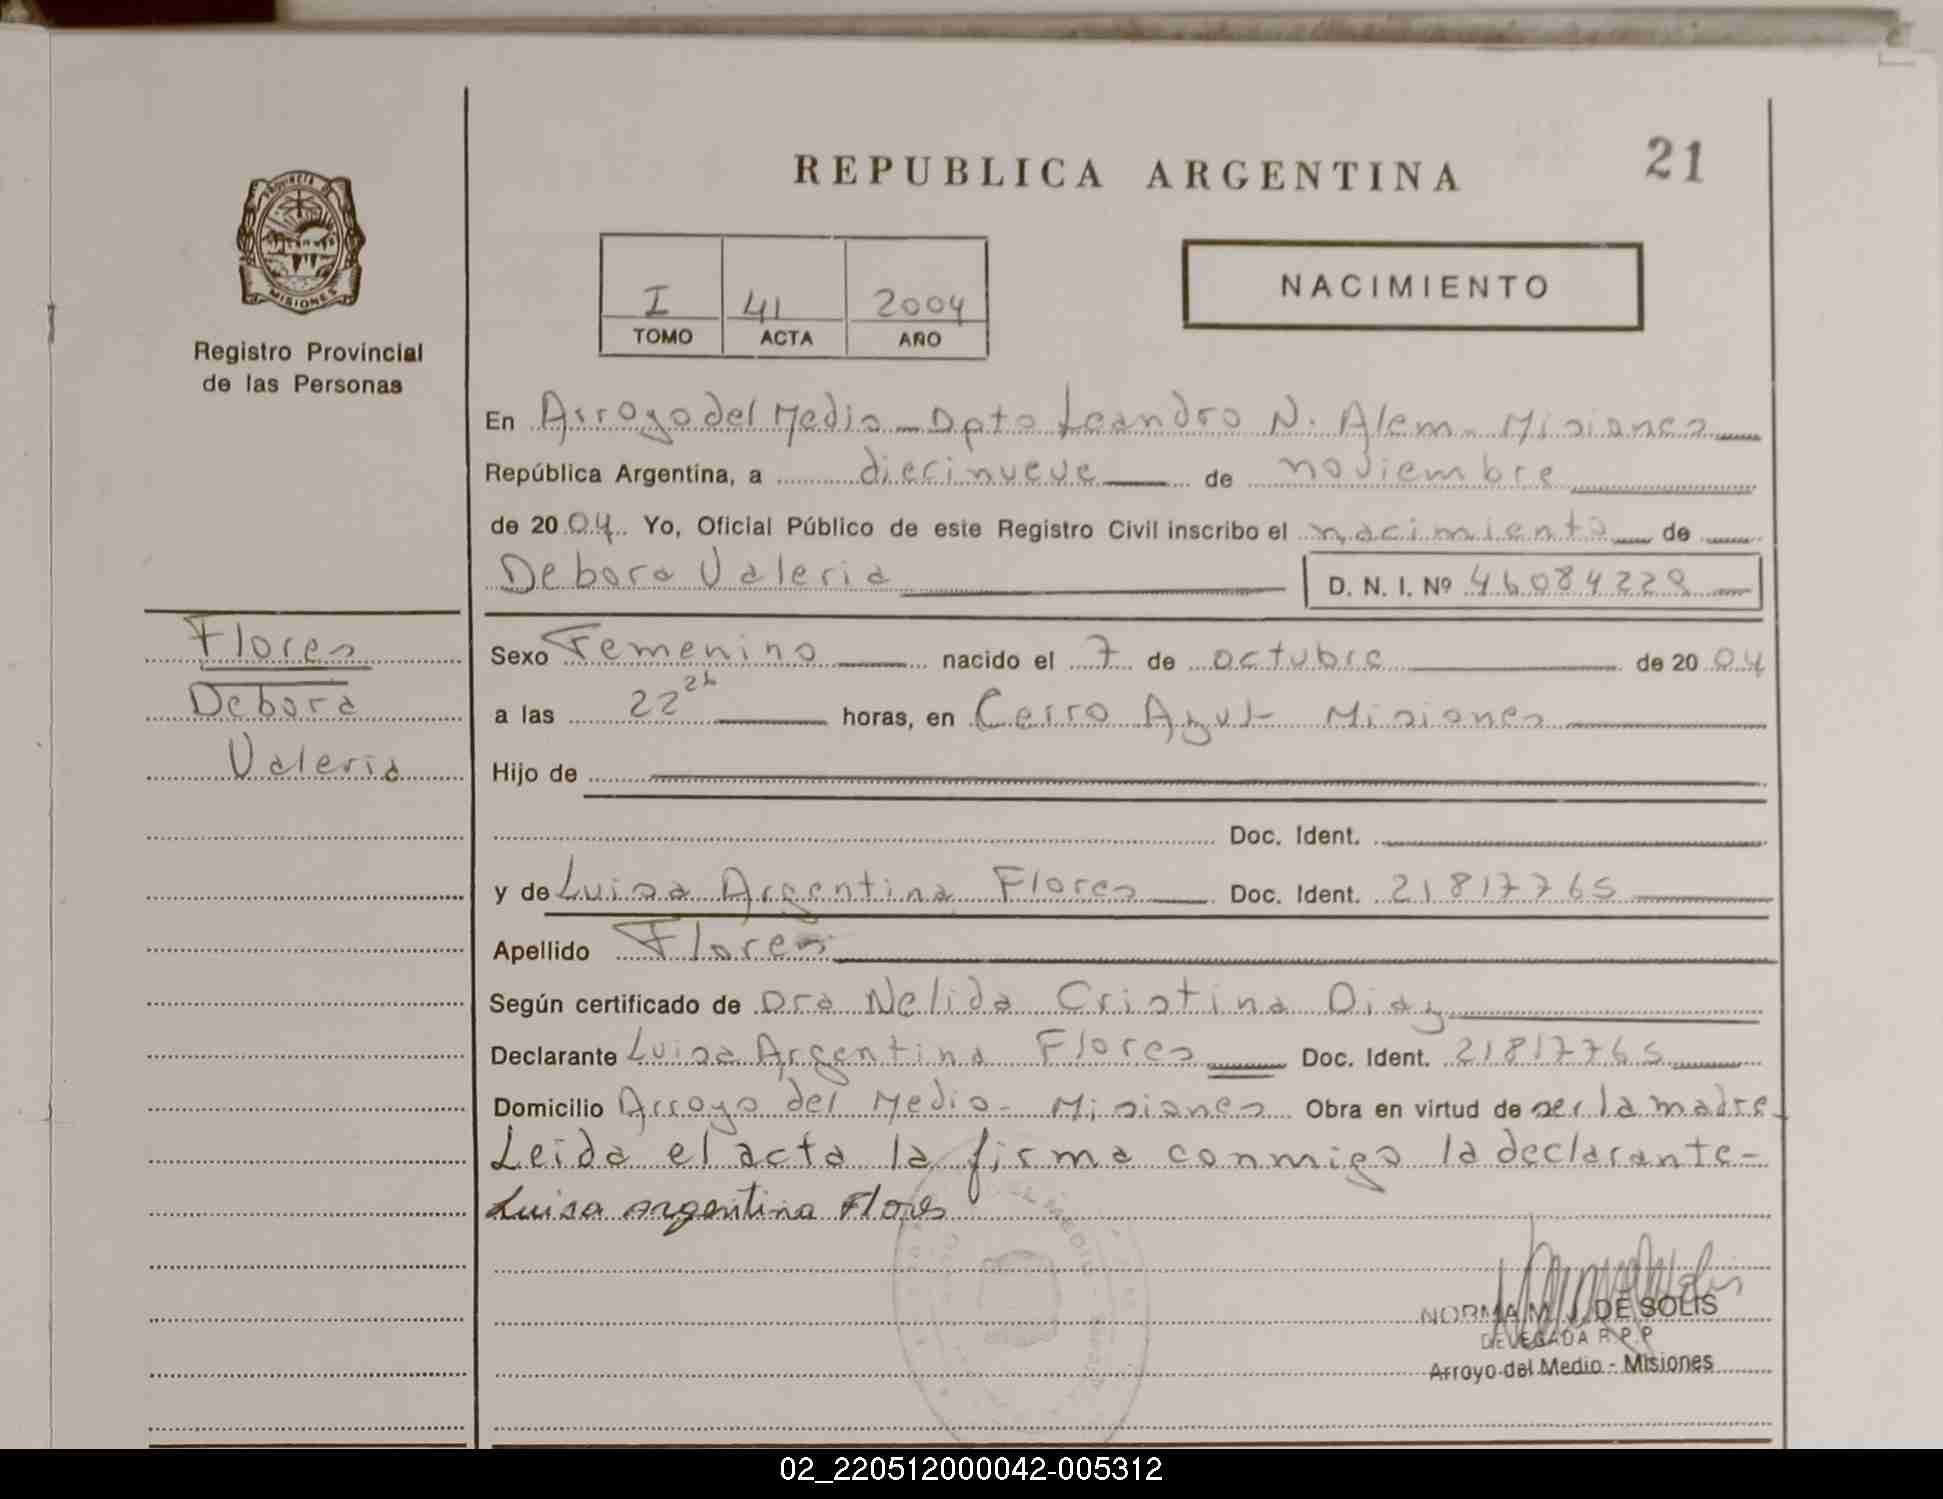 REPUBLICA ARGENTINA
21
PROVINCIA DE
MISIONES
Registro Provincial
de las Personas
I 41 2004
TOMO ACTA AÑO
NACIMIENTO
En Arroyo del Medio - Dpto Leandro N. Alem - Misiones
República Argentina, a diecinueve de noviembre
de 2004. Yo, Oficial Público de este Registro Civil inscribo el nacimiento de
Debora Valeria D. N. I. Nº 46084229
Flores
Debora
Valeria
Sexo Femenino nacido el 7 de octubre de 2004
a las 22 horas, en Cerro Azul - Misiones
Hijo de
Doc. Ident.
y de Luisa Argentina Flores Doc. Ident. 21817765
Apellido Flores
Según certificado de Dra Nelida Cristina Diaz
Declarante Luisa Argentina Flores Doc. Ident. 21817765
Domicilio Arroyo del Medio - Misiones Obra en virtud de ser la madre.
Leida el acta la firma conmigo la declarante -
Luisa argentina Flores
NORMA M. J. DE SOLIS
DELEGADA R. P. P
Arroyo del Medio - Misiones
02_220512000042-005312